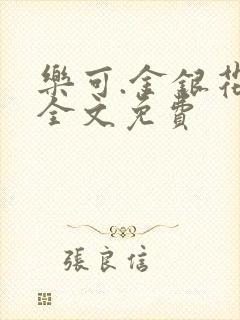 樂可.金銀花
全文免費
張良信